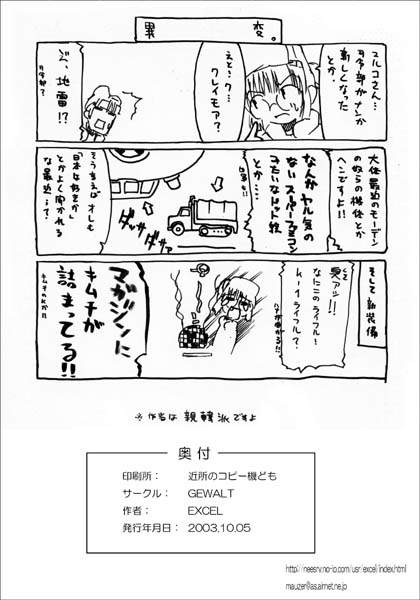 異変。
スルコさん…
弓文部がナンか
新しくなった
とか。
えと、ク…
クレイモア?
ぶ、地雷!?
大体最近のモーデン
の奴らの機体とか
ヘンですよ!!
なんかヤル気の
ないスーパーファミコン
みたいなドット絵
とか…
ダッサダサァ
そういえばオレも
「日本は好きか」
とかよく聞かれる
な最近…て?
そして新装備
くさ
臭アッ!!
なにこのライフル…
ルー1ライフル?
マガジンに
キムチが
詰まってる!!
キムチのにおい
※作者は親韓派ですよ
奥付
印刷所: 近所のコピー機ども
サークル: GEWALT
作者: EXCEL
発行年月日: 2003.10.05
http://neesrv.no-io.com/usr/excel/index.html
mauzer@as.airnet.ne.jp